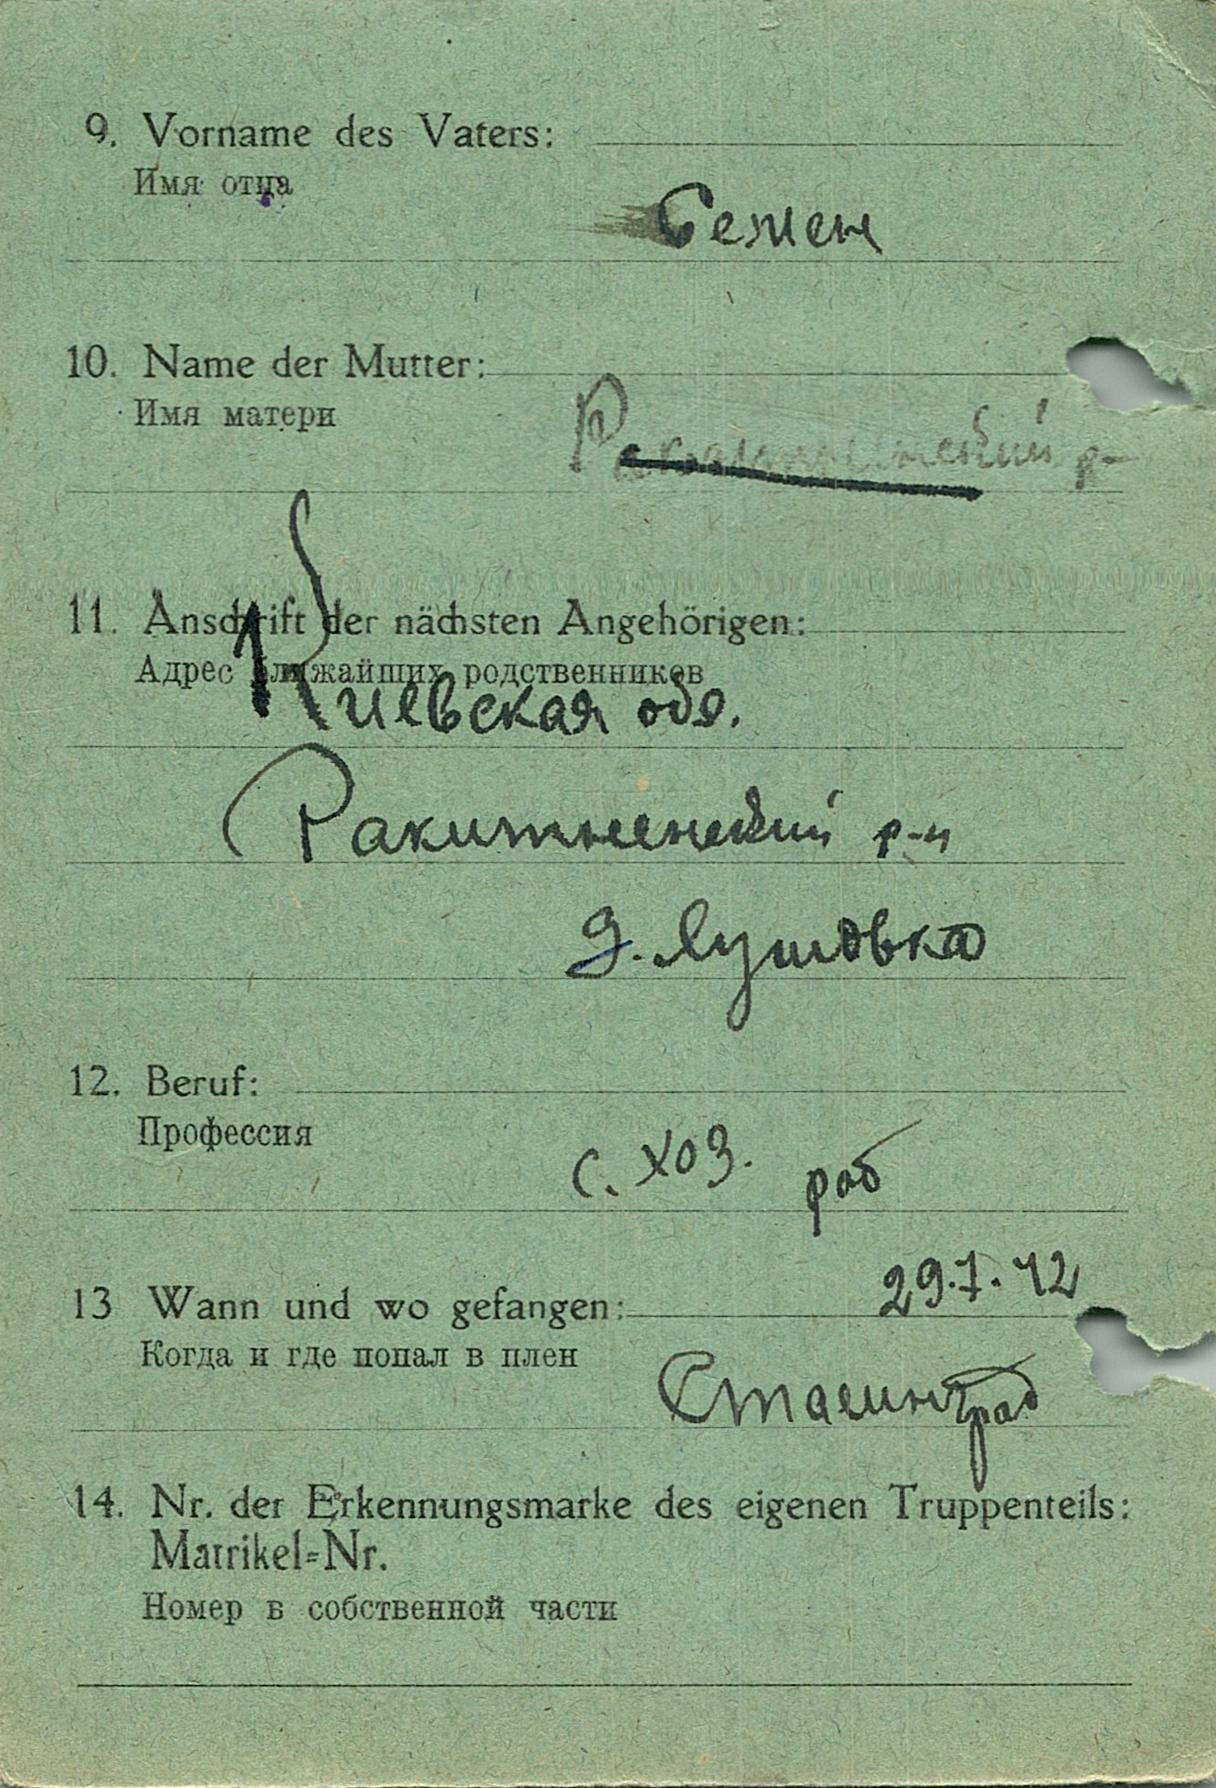 9. Vorname des Vaters:
Имя отца
Семен
10. Name der Mutter:
Имя матери
р-
11. Anschrift der nächsten Angehörigen:
Адрес ближайших родственников
Киевская обл.
Ракитненский р-н
д.
12. Beruf:
Профессия
с. хоз. раб
29.7.42
13 Wann und wo gefangen:
Когда и где попал в плен
Сталинград
14. Nr. der Erkennungsmarke des eigenen Truppenteils:
Matrikel=Nr.
Номер в собственной части